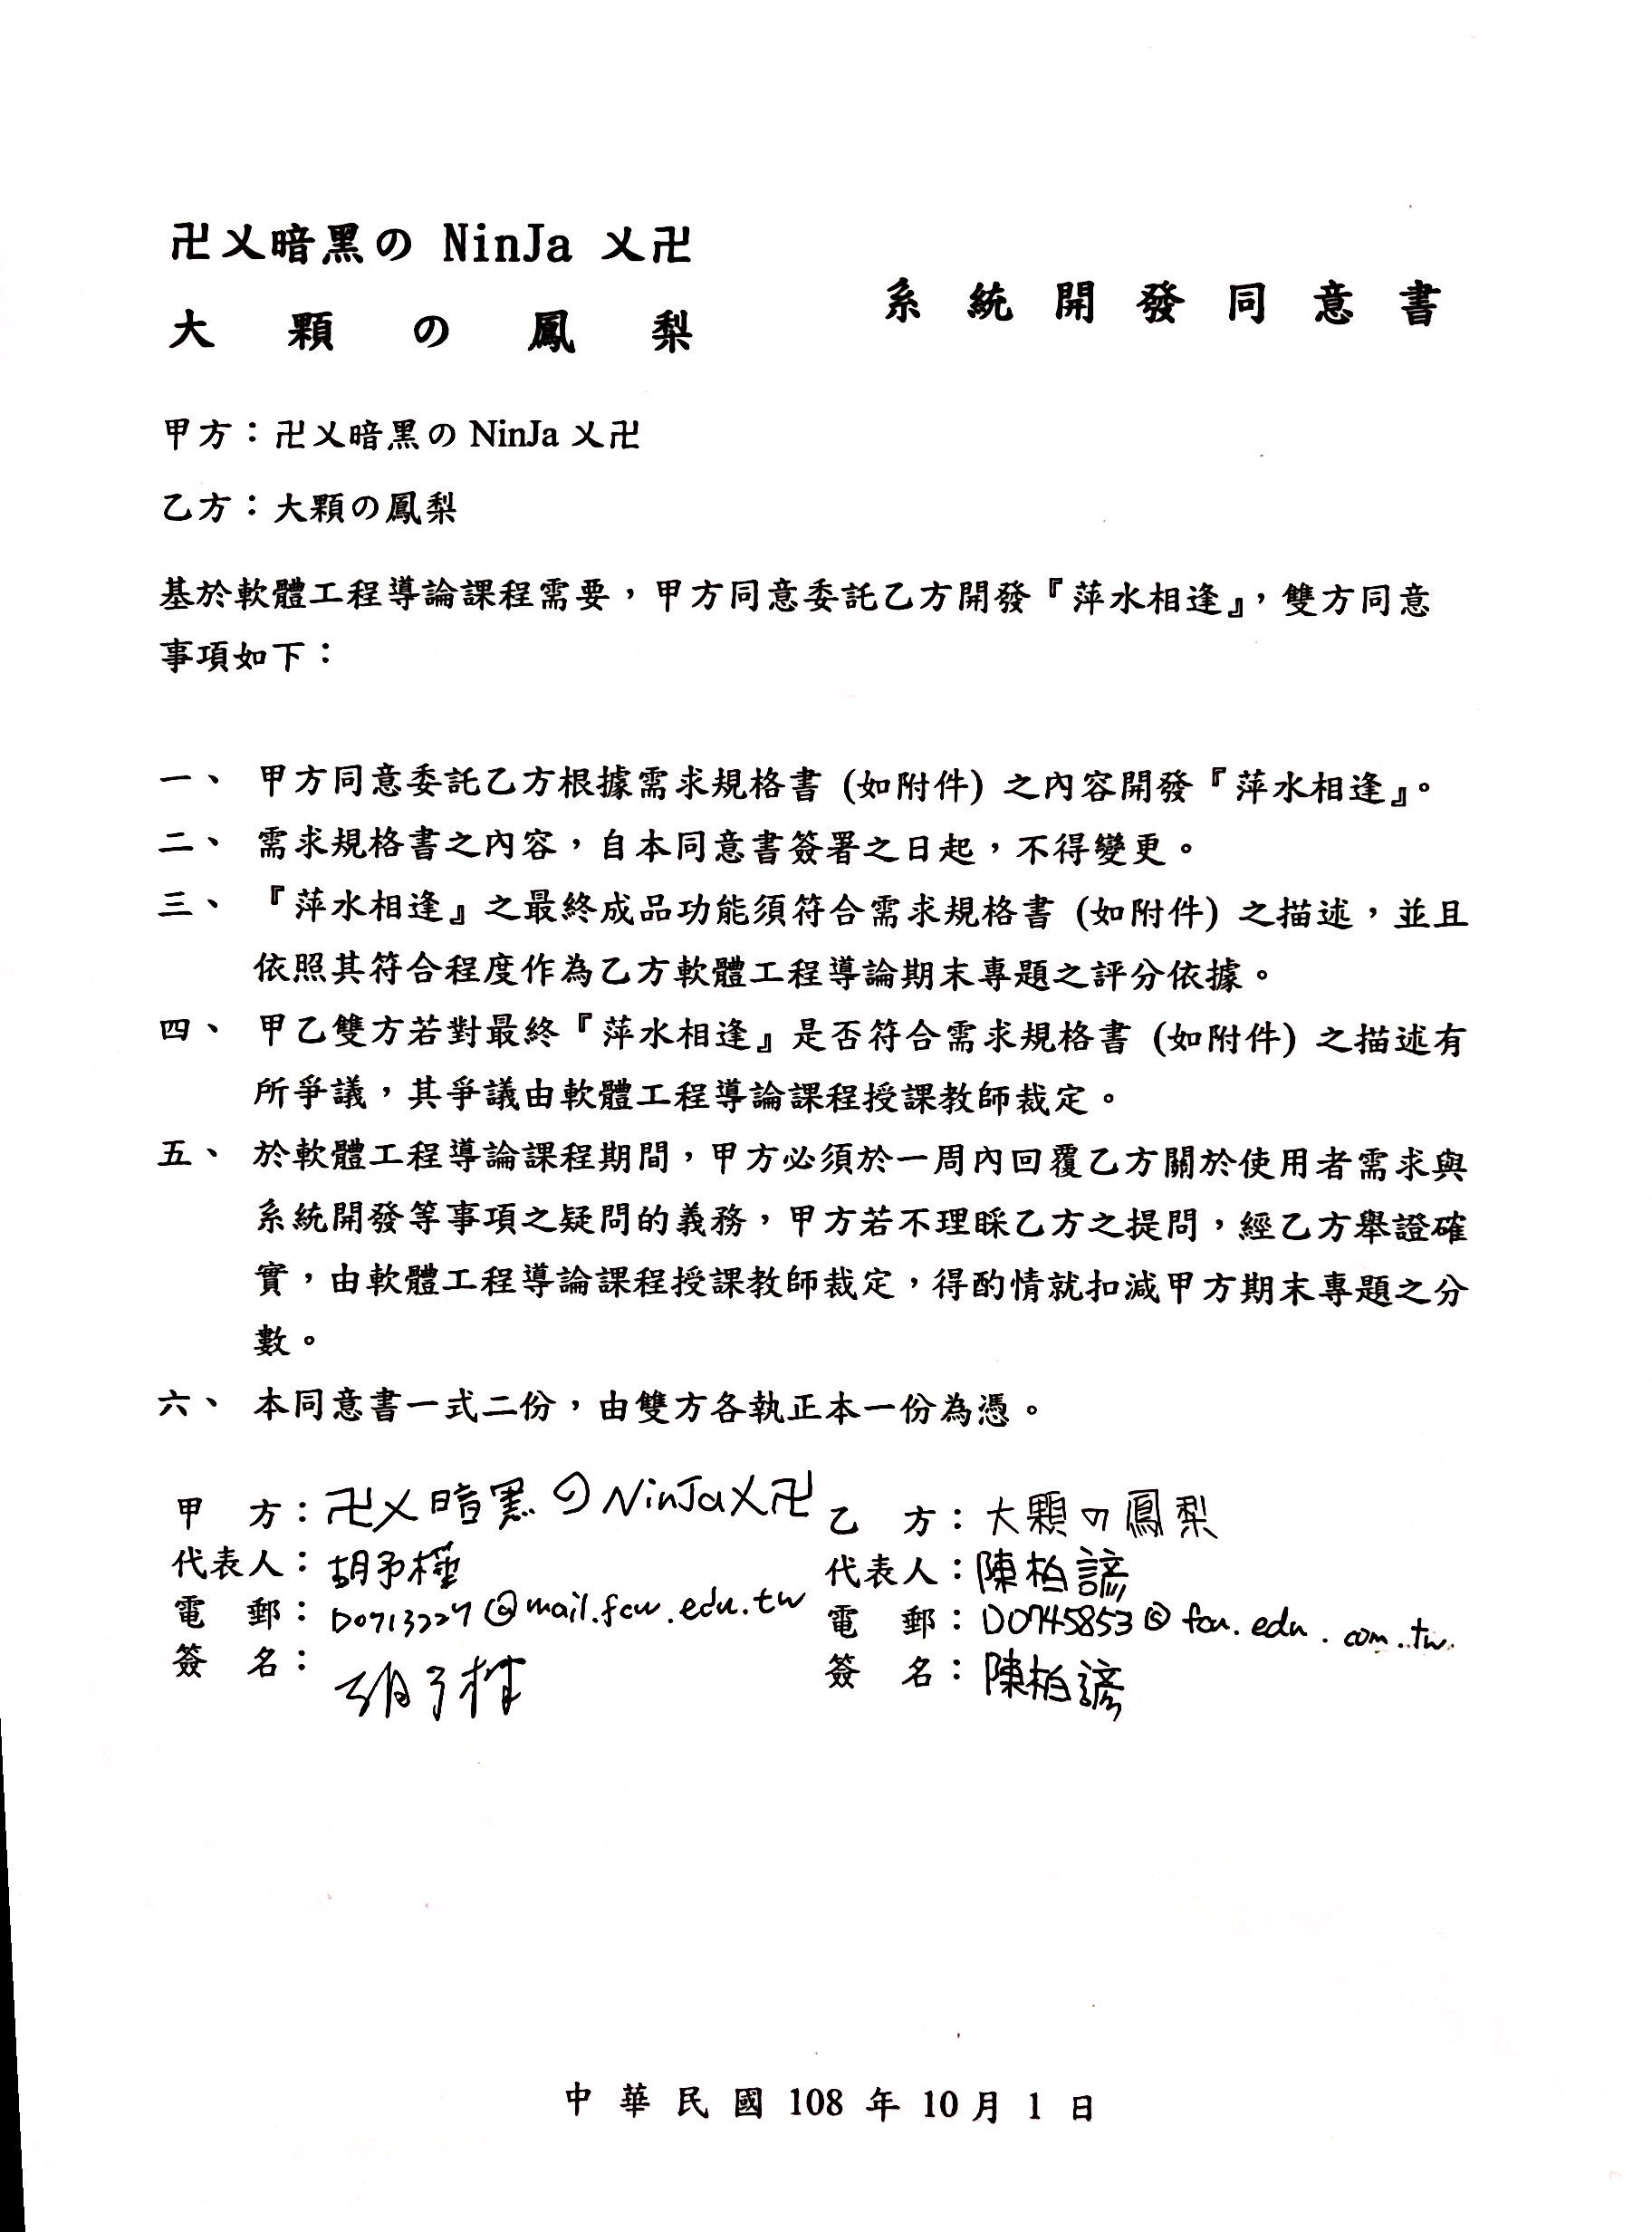 卍乂暗黑の NinJa 乂卍
大顆の鳳梨
系統開發同意書
甲方：卍乂暗黑の NinJa 乂卍
乙方：大顆の鳳梨
基於軟體工程導論課程需要，甲方同意委託乙方開發『萍水相逢』，雙方同意
事項如下：
一、 甲方同意委託乙方根據需求規格書 (如附件) 之內容開發『萍水相逢』。
二、 需求規格書之內容，自本同意書簽署之日起，不得變更。
三、 『萍水相逢』之最終成品功能須符合需求規格書 (如附件) 之描述，並且
依照其符合程度作為乙方軟體工程導論期末專題之評分依據。
四、 甲乙雙方若對最終『萍水相逢』是否符合需求規格書 (如附件) 之描述有
所爭議，其爭議由軟體工程導論課程授課教師裁定。
五、 於軟體工程導論課程期間，甲方必須於一周內回覆乙方關於使用者需求與
系統開發等事項之疑問的義務，甲方若不理睬乙方之提問，經乙方舉證確
實，由軟體工程導論課程授課教師裁定，得酌情就扣減甲方期末專題之分
數。
六、 本同意書一式二份，由雙方各執正本一份為憑。
甲 方：卍乂暗黑のNinJa乂卍
代表人：胡予
電 郵：D0713227@mail.fcu.edu.tw
簽 名：
乙 方：大顆の鳳梨
代表人：陳柏諺
電 郵：D0745853@fcu.edu.com.tw
簽 名：陳柏諺
中 華 民 國 108 年 10 月 1 日